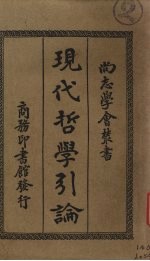 尚志學會叢書
現代哲學引論
商務印書館發行